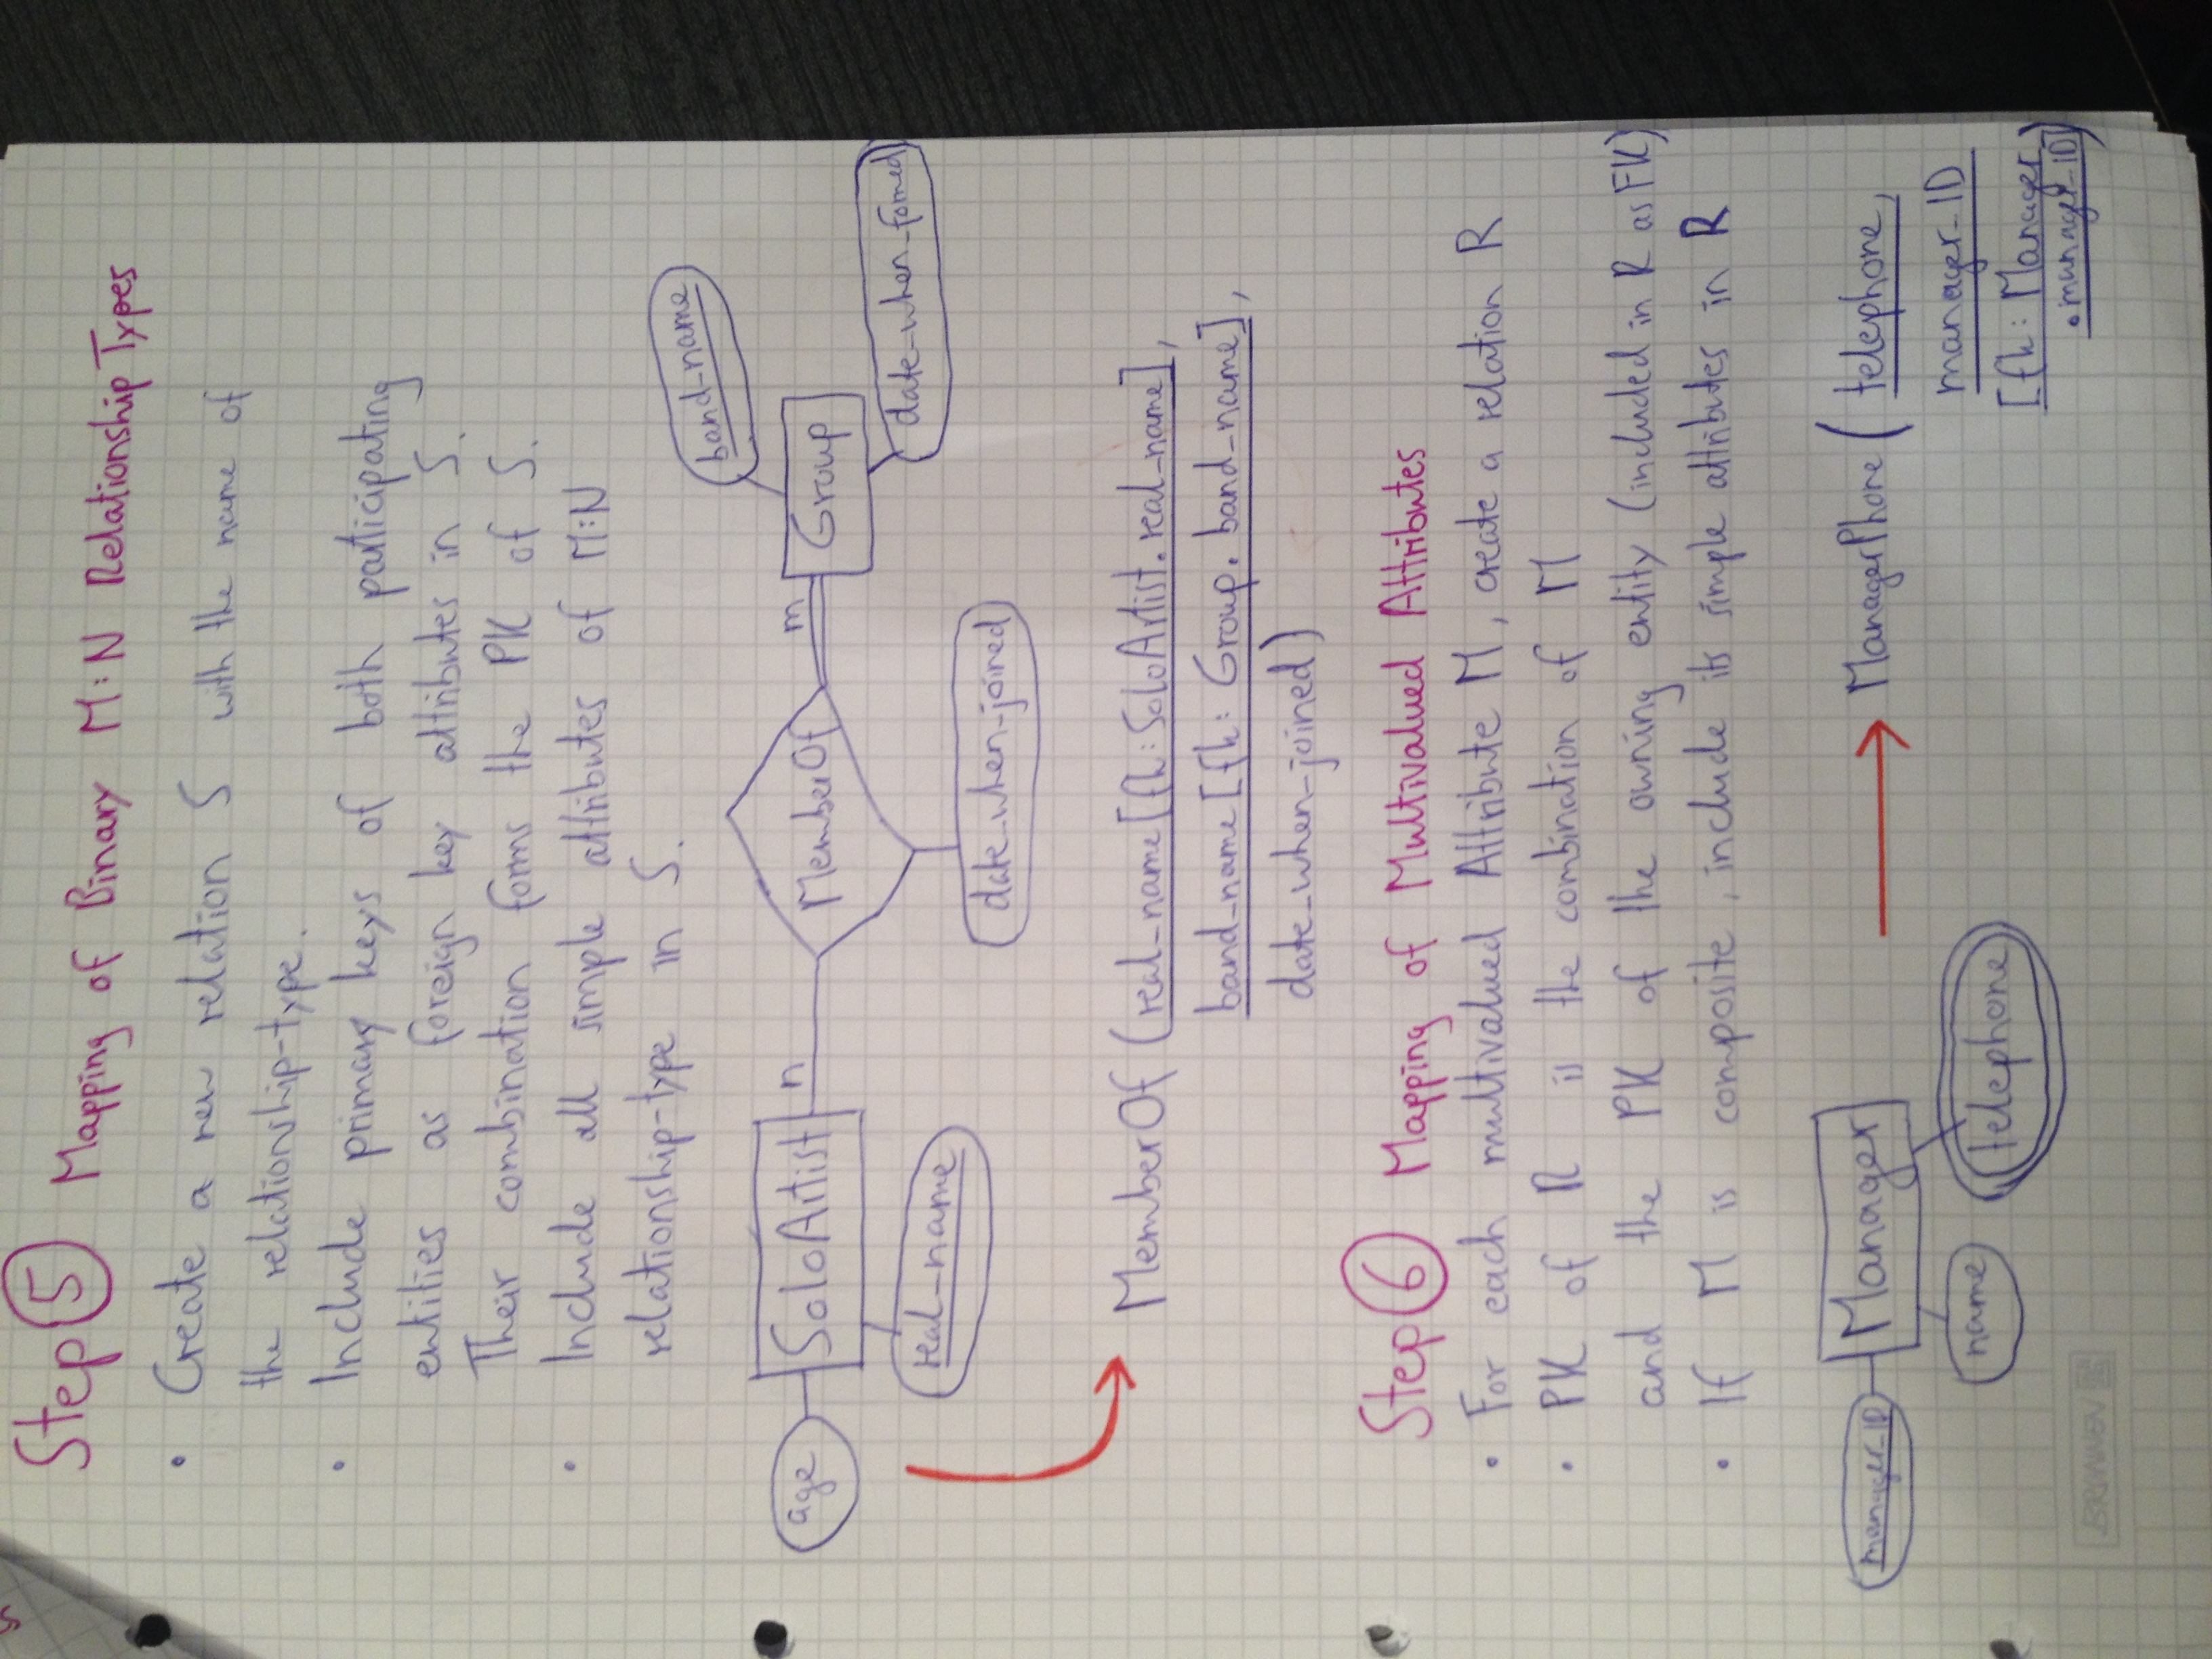 Step 5 Mapping of Binary M:N Relationship Types
• Create a new relation S with the name of
the relationship-type.
• Include primary keys of both participating
entities as foreign key attributes in S.
Their combination forms the PK of S.
• Include all simple attributes of M:N
relationship-type in S.
band_name
age SoloArtist n MemberOf m Group
date_when_formed
real_name
date_when_joined
MemberOf (real_name[fk:SoloArtist.real_name],
band_name[fk: Group.band_name],
date_when_joined)
Step 6 Mapping of Multivalued Attributes
• For each multivalued Attribute M, create a relation R
• PK of R is the combination of M
and the PK of the owning entity (included in R as FK)
• If M is composite, include its simple attributes in R
manager_ID Manager ManagerPhone ( telephone,
manager_ID
name telephone
[fk: Manager
.manager_ID])
BRUNNEN